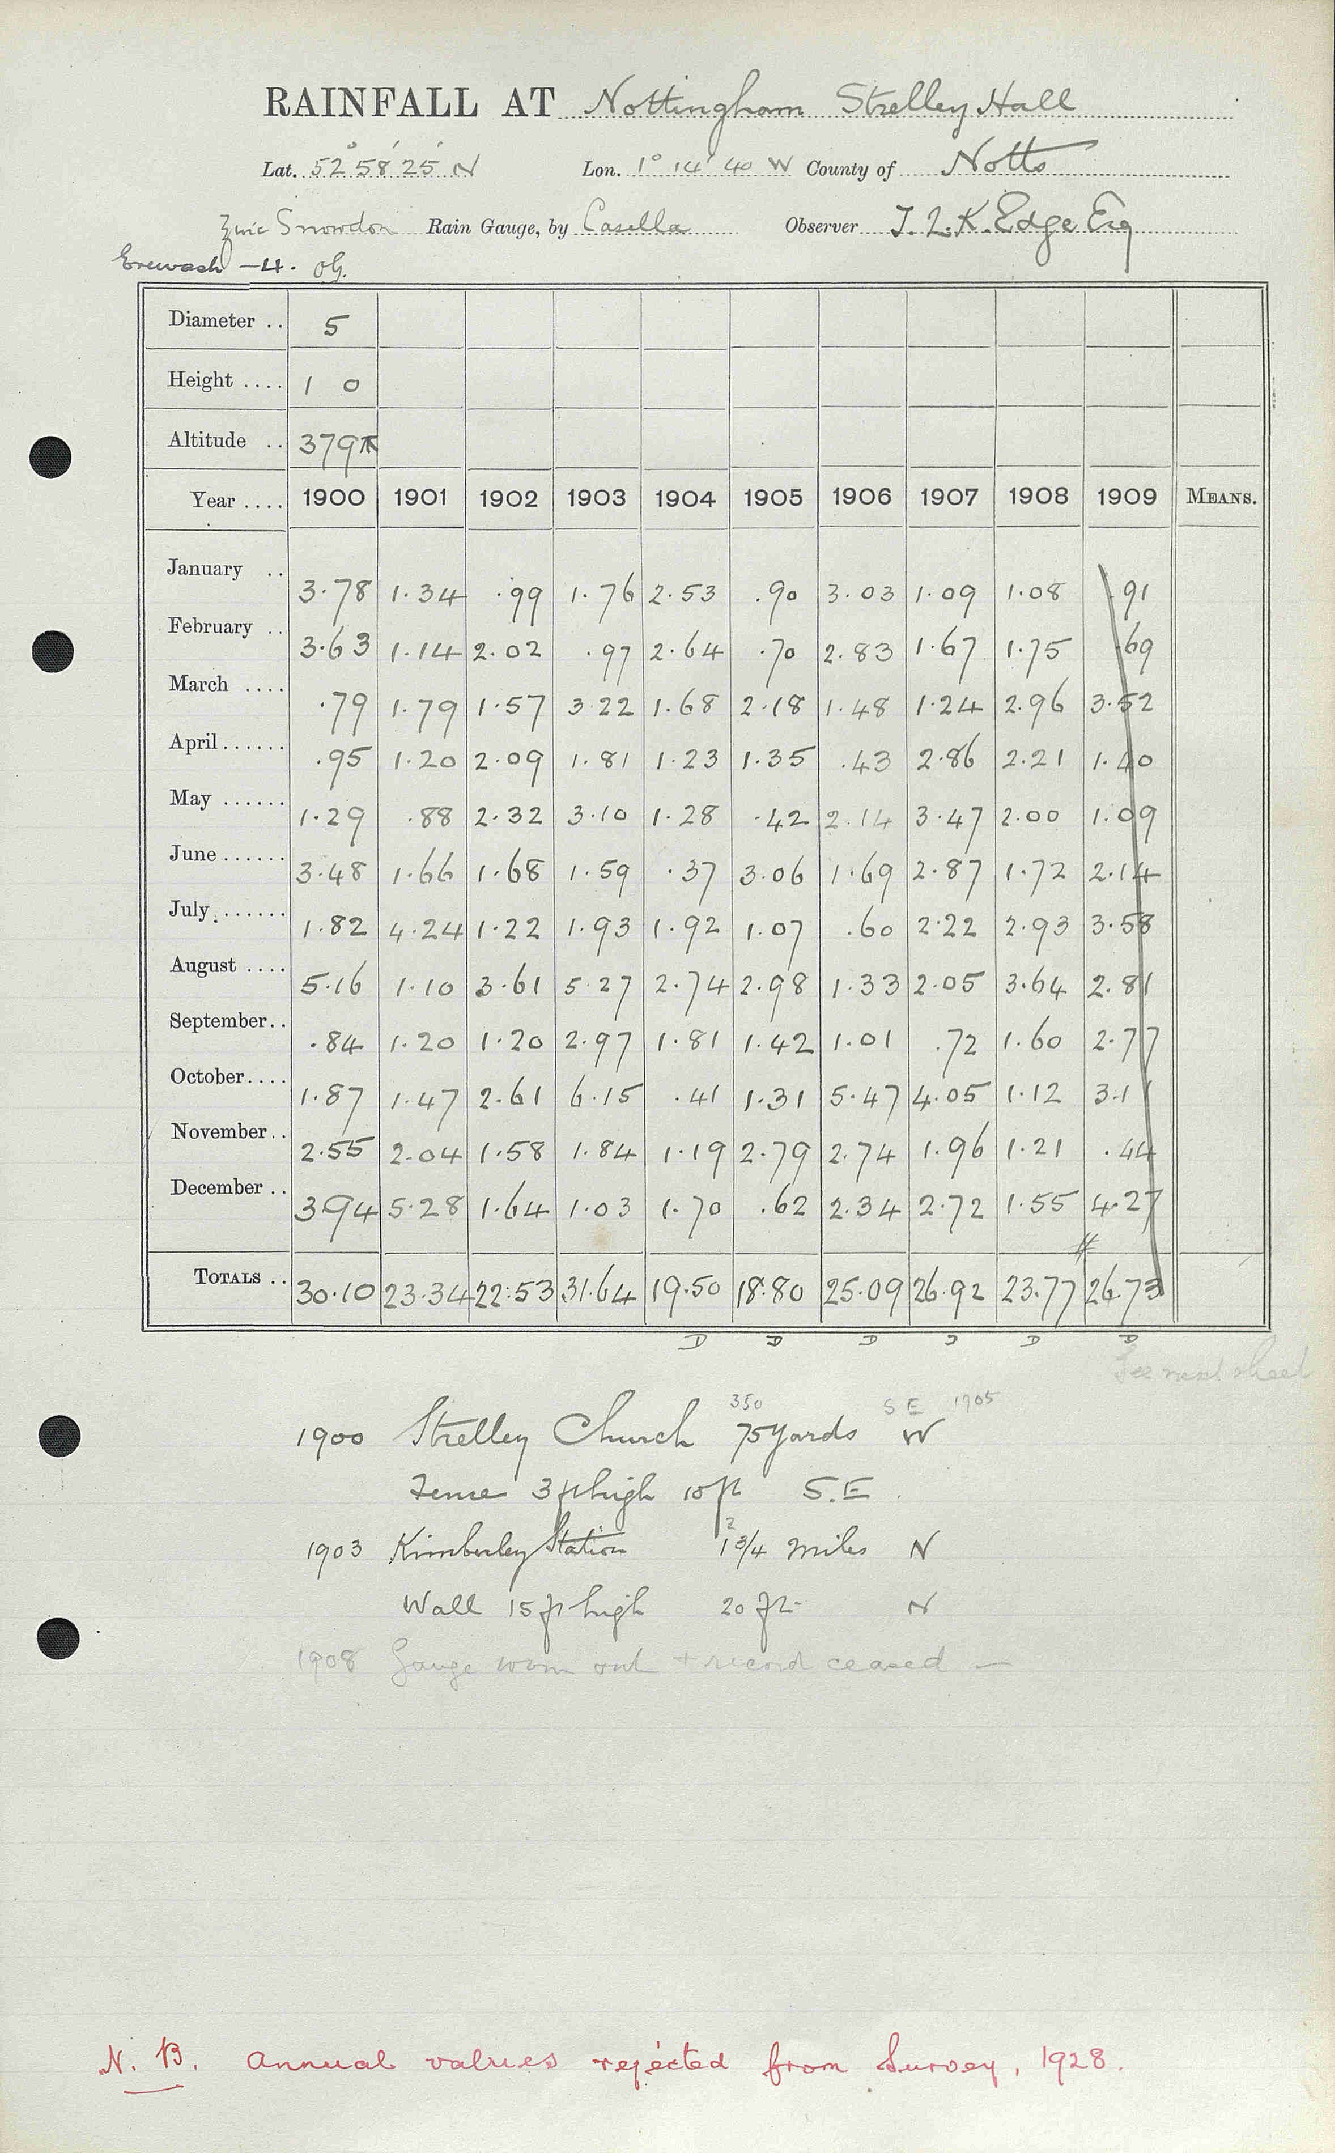 RAINFALL AT Nottingham Strelley Hall
Lat. 52° 58' 25" N Lon. 1° 14' 40 W County of Notts
Zinc Snowdon Rain Gauge, by Casella Observer T. L. K. Edge Esq
Erewash -4. 09.
Diameter .. 5
Height .... 1 0
Altitude .. 379 ft
Year .... 1900 1901 1902 1903 1904 1905 1906 1907 1908 1909 MEANS.
January .. 3.78 1.34 .99 1.76 2.53 .90 3.03 1.09 1.08 .91
February .. 3.63 1.14 2.02 .97 2.64 .70 2.83 1.67 1.75 .69
March .... .79 1.79 1.57 3.22 1.68 2.18 1.48 1.24 2.96 3.52
April ...... .95 1.20 2.09 1.81 1.23 1.35 .43 2.86 2.21 1.40
May ...... 1.29 .88 2.32 3.10 1.28 .42 2.14 3.47 2.00 1.09
June ...... 3.48 1.66 1.68 1.59 .37 3.06 1.69 2.87 1.72 2.14
July ....... 1.82 4.24 1.22 1.93 1.92 1.07 .60 2.22 2.93 3.58
August .... 5.16 1.10 3.61 5.27 2.74 2.98 1.33 2.05 3.64 2.81
September .. .84 1.20 1.20 2.97 1.81 1.42 1.01 .72 1.60 2.77
October .... 1.87 1.47 2.61 6.15 .41 1.31 5.47 4.05 1.12 3.11
November .. 2.55 2.04 1.58 1.84 1.19 2.79 2.74 1.96 1.21 .44
December .. 3.94 5.28 1.64 1.03 1.70 .62 2.34 2.72 1.55 4.27
TOTALS .. 30.10 23.34 22.53 31.64 19.50 18.80 25.09 26.92 23.77 26.73
D D D D D D
See next sheet
350 SE 1905
1900 Strelley Church 75 yards W
Fence 3 ft high 10 ft S.E.
1903 Kimberley Station 1 3/4 miles N
Wall 15 ft high 20 ft N
1908 Gauge worn out + record ceased —
N. B. Annual values rejected from Survey, 1928.